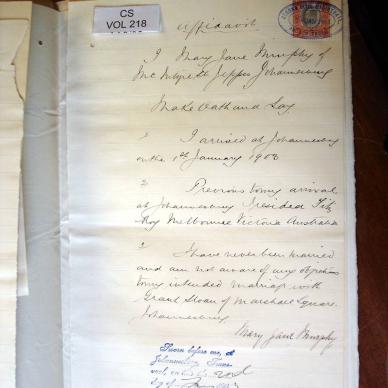 CS
VOL 218
Affidavit
I Mary Jane Murphy of
Jeppes Johannesburg
Make Oath and Say
1 I arrived at Johannesburg
on the 1st January 1903
2 Previous to my arrival
at Johannesburg I resided Fitz
Roy Melbourne Victoria Australia
3 I have never been married
and am not aware of any objection
to my intended marriage with
Grant Sloan of Marshall Square
Johannesburg
Mary Jane Murphy
Sworn before me, at
Johannesburg Trans-
vaal, on this
day of